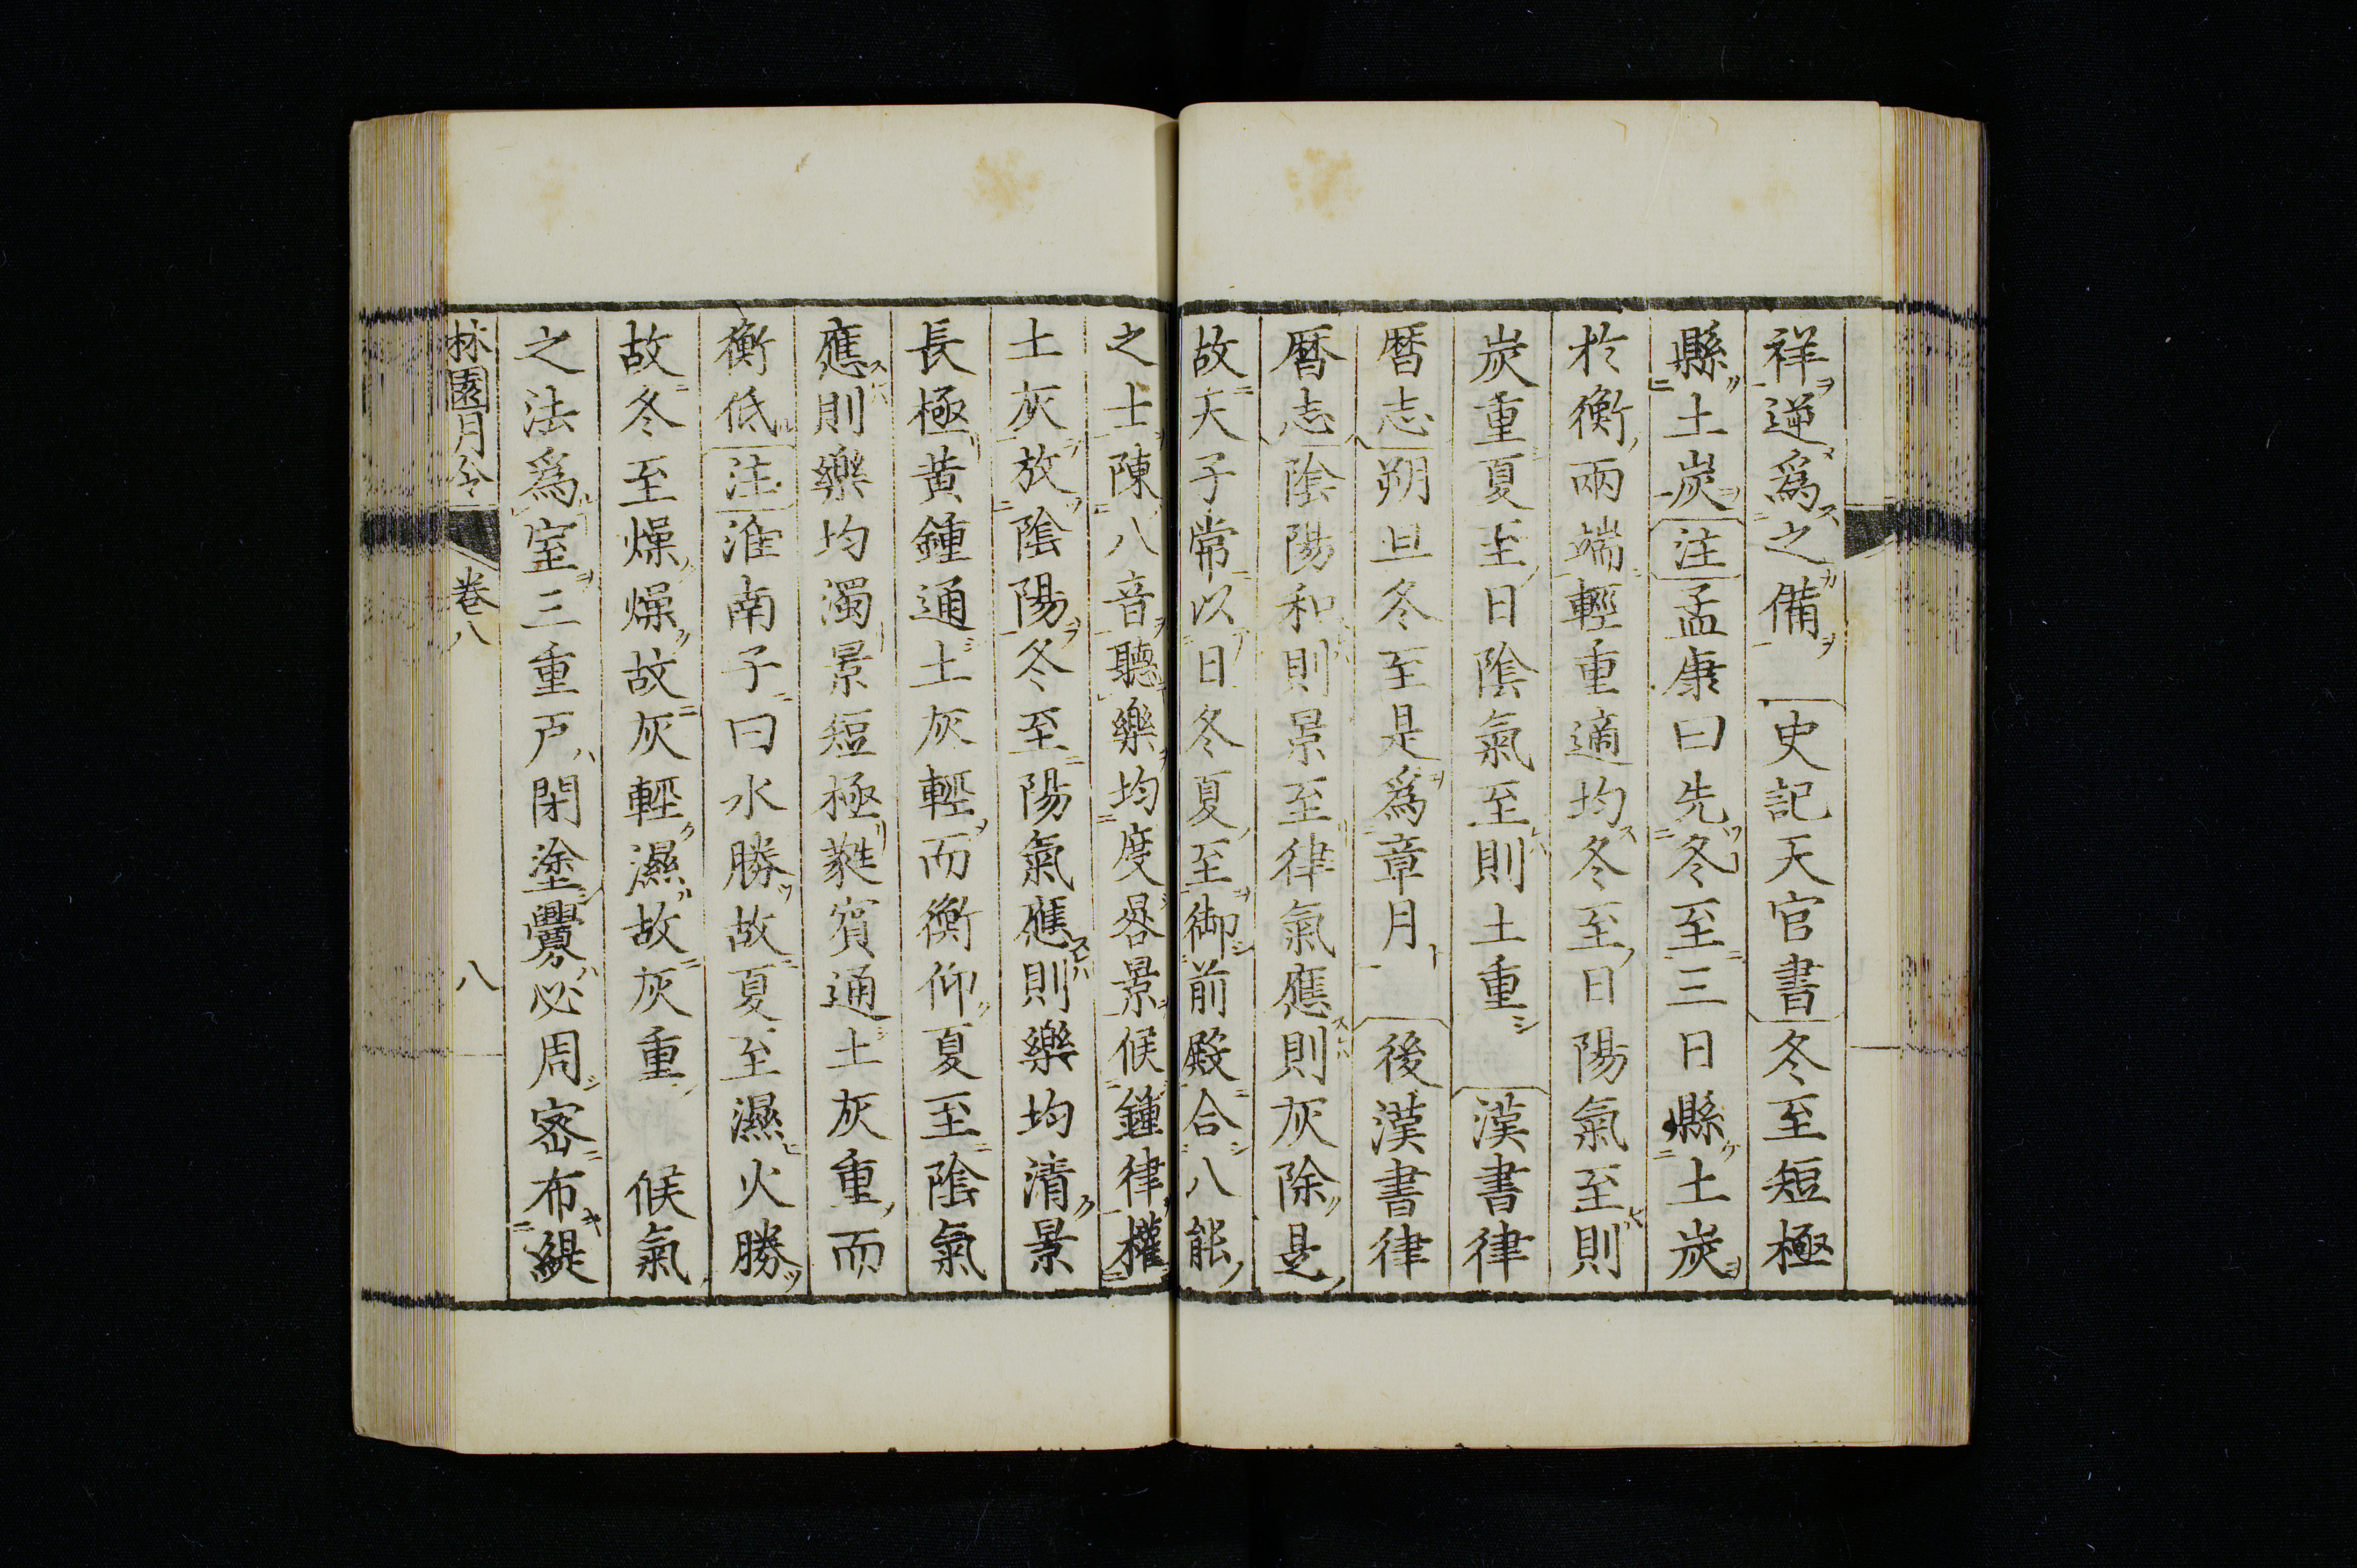 祥逆爲之備　史記天官書冬至短極
縣土炭注孟康曰先冬至三日縣土炭
於衡兩端輕重適均冬至日陽氣至則
炭重夏至日陰氣至則土重　漢書律
暦志朔旦冬至是爲章月　後漢書律
暦志陰陽和則景至律氣應則灰除是
故天子常以日冬夏至御前殿合八能
之士陳八音聽樂均度晷景候鍾律權
土灰放陰陽冬至陽氣應則樂均清景
長極黃鍾通土灰輕而衡仰夏至陰氣
應則樂均濁景短極蕤賓通土灰重而
衡低注淮南子曰水勝故夏至濕火勝
故冬至燥燥故灰輕濕故灰重　候氣
之法爲室三重戸閉塗釁必周密布緹
林園月令　卷八　八